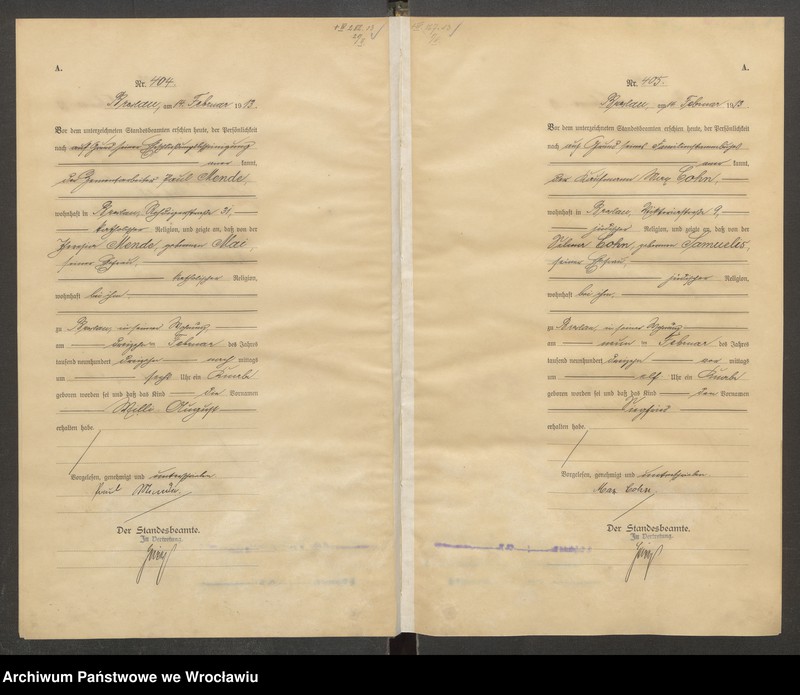 A.
Nr. 404.
Breslau, am 14. Februar 1913.
Vor dem unterzeichneten Standesbeamten erschien heute, der Persönlichkeit
nach auf Grund seiner Eheschließungsbescheinigung
aner kannt,
der Zementarbeiter Paul Mende,
wohnhaft in Breslau, 31,
katholischer Religion, und zeigte an, daß von der
Mende, geborenen Mai,
seiner Ehefrau,
katholischer Religion,
wohnhaft bei ihm,
zu Breslau, in seiner Wohnung
am Februar des Jahres
tausend neunhundert dreizehn nach mittags
um sechs Uhr ein Knabe
geboren worden sei und daß das Kind den Vornamen
August
erhalten habe.
Vorgelesen, genehmigt und unterschrieben
Paul Mende.
Der Standesbeamte.
In Vertretung.
A.
Nr. 405.
Breslau, am 14. Februar 1913
Vor dem unterzeichneten Standesbeamten erschien heute, der Persönlichkeit
nach auf Grund seines Familienstammbuchs
aner kannt,
der Kaufmann Max Cohn,
wohnhaft in Breslau, 9,
jüdischer Religion, und zeigte an, daß von der
Cohn, geborenen Samueles,
seiner Ehefrau,
jüdischer Religion,
wohnhaft bei ihm,
zu Breslau, in seiner Wohnung
am neunten Februar des Jahres
tausend neunhundert dreizehn vor mittags
um elf Uhr ein Knabe
geboren worden sei und daß das Kind den Vornamen
Siegfried
erhalten habe.
Vorgelesen, genehmigt und unterschrieben
Max Cohn.
Der Standesbeamte.
In Vertretung.
Archiwum Państwowe we Wrocławiu